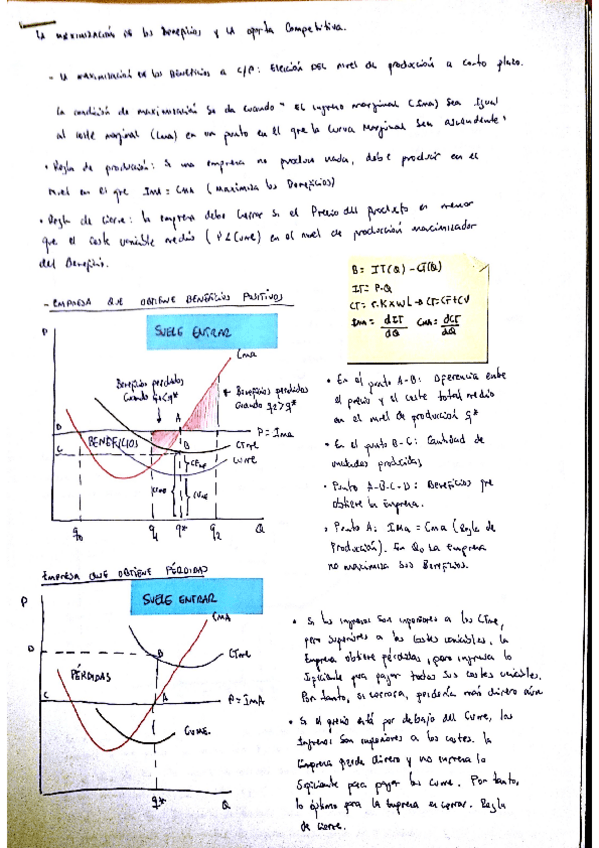 La maximización de los Beneficios y la oferta Competitiva.
- La maximización de los Beneficios a c/p: Elección del nivel de producción a corto plazo.
La condición de maximización se da cuando "El ingreso marginal (Ima) sea igual
al coste marginal (Cma) en un punto en el que la curva marginal sea ascendente"
• Regla de producción: Si una empresa no produce nada, debe producir en el
nivel en el que IMA = CMA (Maximiza los Beneficios)
• Regla de cierre: la empresa debe cerrar si el Precio del producto es menor
que el coste variable medio (P<Cvme) en el nivel de producción maximizador
del Beneficio.
B= IT(Q) - CT(Q)
IT= P·Q
CT= r.K×wL → CT=CF+CV
IMA = dIT/dQ CMA = dCT/dQ
- EMPRESA QUE OBTIENE BENEFICIOS POSITIVOS
SUELE ENTRAR
P
Cma
Beneficios perdidos
cuando q1<q*
Beneficios perdidos
cuando q2>q*
D
A
P=Ima
BENEFICIOS
B
CTme
C
CFme
CVme
CVme
q0 q1 q* q2 Q
• En el punto A-B: Diferencia entre
el precio y el coste total medio
en el nivel de producción q*
• En el punto B-C: Cantidad de
unidades producidas
• Punto A-B-C-D: Beneficios que
obtiene la empresa.
• Punto A: IMa = Cma (Regla de
Producción). En Q0 la empresa
no maximiza sus Beneficios.
EMPRESA QUE OBTIENE PÉRDIDAS
SUELE ENTRAR
P
CMA
D
B
CTme
PÉRDIDAS
C
A
P=IMA
CVME.
q* Q
• Si los ingresos son inferiores a los CTme,
pero superiores a los costes variables. la
Empresa obtiene pérdidas, pero ingresa lo
suficiente para pagar todos sus costes variables.
Por tanto, si cerrara, perdería más dinero aún
• Si el precio está por debajo del Cvme, los
Ingresos son inferiores a los costes. la
Empresa pierde dinero y no ingresa lo
suficiente para pagar los Cvme. Por tanto,
lo óptimo para la Empresa es cerrar. Regla
de cierre.